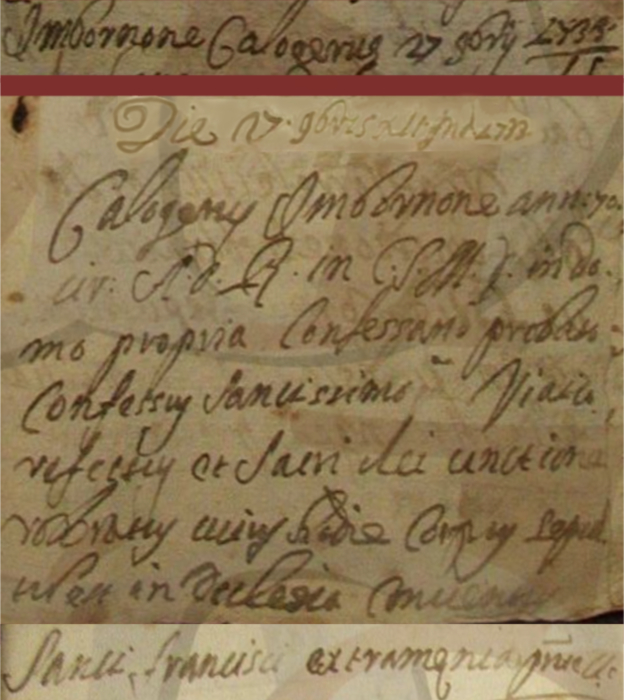 Imbornone Calogerus 27 9bris 1738
Die 27 9bris
Calogerus Imbornone ann: 70
cir: A. D. R. in C. S. M. E. in do:
mo propria Confessario probato
Confessus Sanctissimo Viatico
refectus et Sacri olei unctione
roboratus cuius hodie Corpus sepul
tum est in Ecclesia Conventus
Sancti francisci extramenia